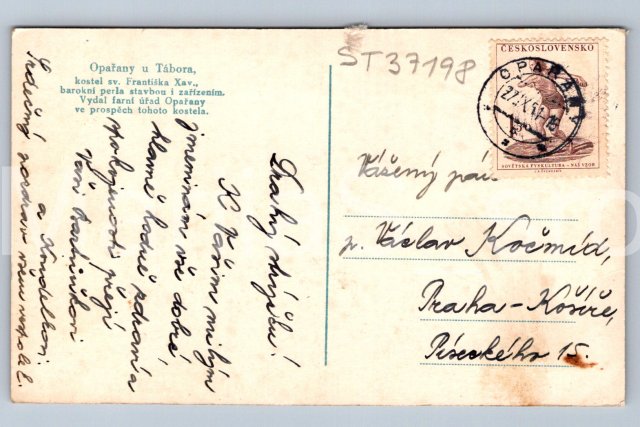 Opařany u Tábora,
kostel sv. Františka Xav.,
barokní perla stavbou i zařízením.
Vydal farní úřad Opařany
ve prospěch tohoto kostela.
ST37198
ČESKOSLOVENSKO
OPAŘANY
SOVĚTSKÁ FYSKULTURA - NÁŠ VZOR
Vážený pán
p. Václav Kočmíd,
Praha-Košíře,
Píseckého 15.
Drahý strýčku!
K Vašim milým
jmeninám vše dobré
hlavně hodně zdraví a
spokojenosti přejí
Vaši
a
Srdečný pozdrav všem